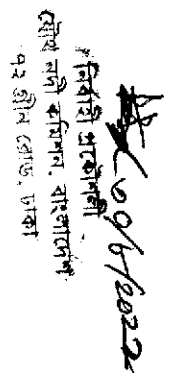 ৩০/৮/২০২২
নির্বাহী প্রকৌশলী
যৌথ নদী কমিশন, বাংলাদেশ
৭২ গ্রীন রোড, ঢাকা